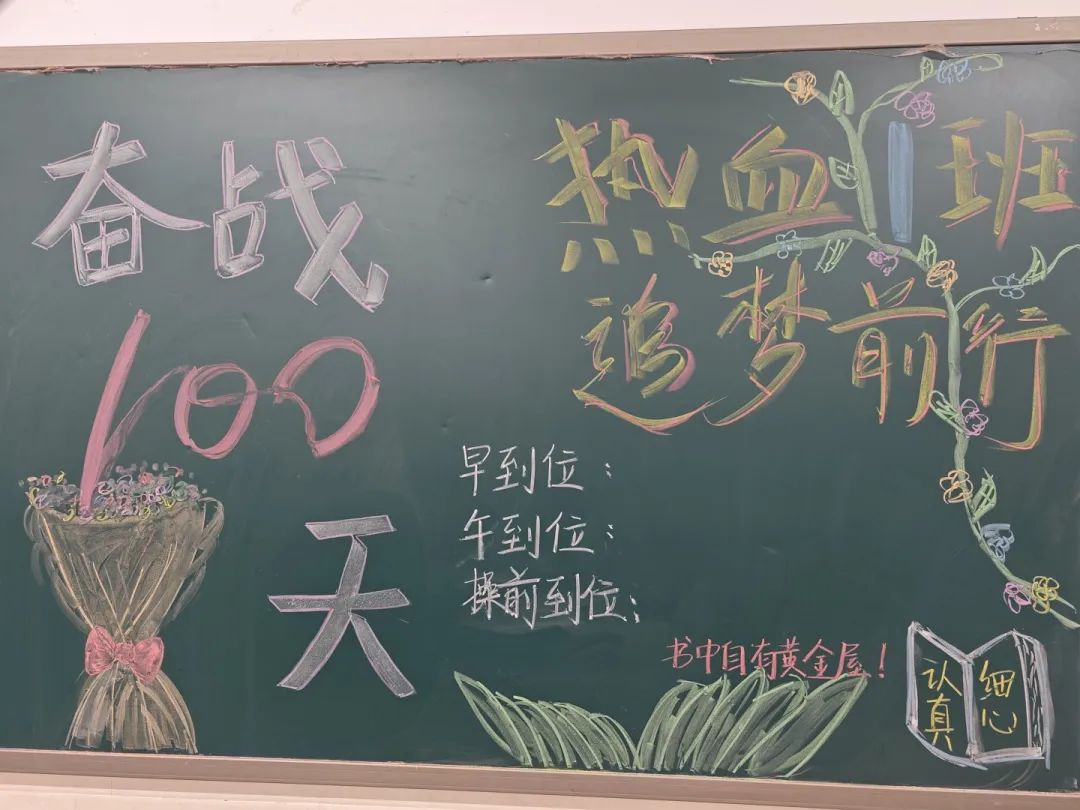 奋战
100
天
热血1班
追梦前行
早到位：
午到位：
操前到位：
书中自有黄金屋！
认真
细心